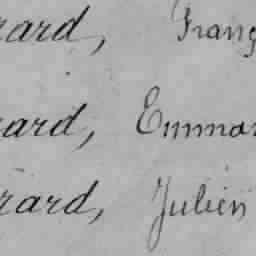 rard, Franç
rard, Emma
rard, Julien